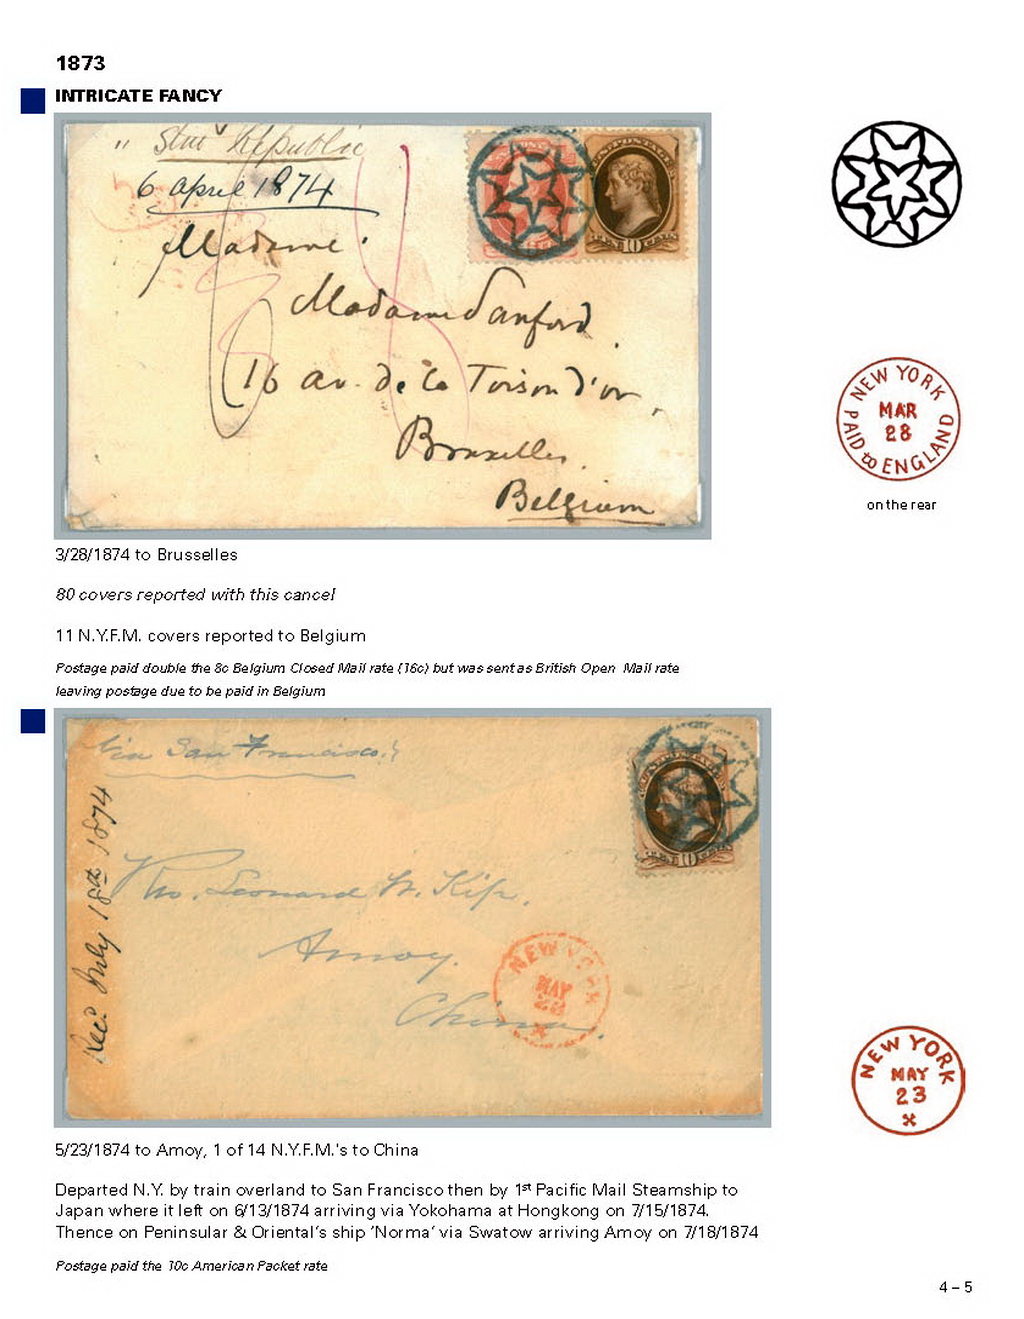 1873
INTRICATE FANCY
" Star Republic
6 April 1874
Madame
Madame Sanford
16 av. de la Toison d'or,
Bruxelles.
Belgium
10
NEW YORK
MAR
28
PAID to ENGLAND
on the rear
3/28/1874 to Brusselles
80 covers reported with this cancel
11 N.Y.F.M. covers reported to Belgium
Postage paid double the 8c Belgium Closed Mail rate (16c) but was sent as British Open Mail rate
leaving postage due to be paid in Belgium
Via San Francisco.
10
Rec'd July 18th 1874
Leonard W. Kip,
Amoy.
China.
NEW YORK
MAY
23
NEW YORK
MAY
23
5/23/1874 to Amoy, 1 of 14 N.Y.F.M.'s to China
Departed N.Y. by train overland to San Francisco then by 1st Pacific Mail Steamship to
Japan where it left on 6/13/1874 arriving via Yokohama at Hongkong on 7/15/1874.
Thence on Peninsular & Oriental's ship 'Norma' via Swatow arriving Amoy on 7/18/1874
Postage paid the 10c American Packet rate
4 – 5